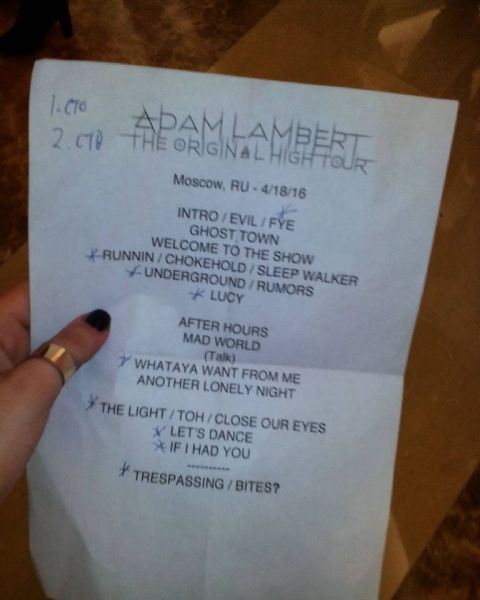 1. C10
2. C78
ADAM LAMBERT
THE ORIGINAL HIGH TOUR
Moscow, RU - 4/18/16
INTRO / EVIL / FYE
GHOST TOWN
WELCOME TO THE SHOW
* RUNNIN / CHOKEHOLD / SLEEP WALKER
* UNDERGROUND / RUMORS
* LUCY
AFTER HOURS
MAD WORLD
(Talk)
* WHATAYA WANT FROM ME
ANOTHER LONELY NIGHT
* THE LIGHT / TOH / CLOSE OUR EYES
* LET'S DANCE
* IF I HAD YOU
----------
* TRESPASSING / BITES?